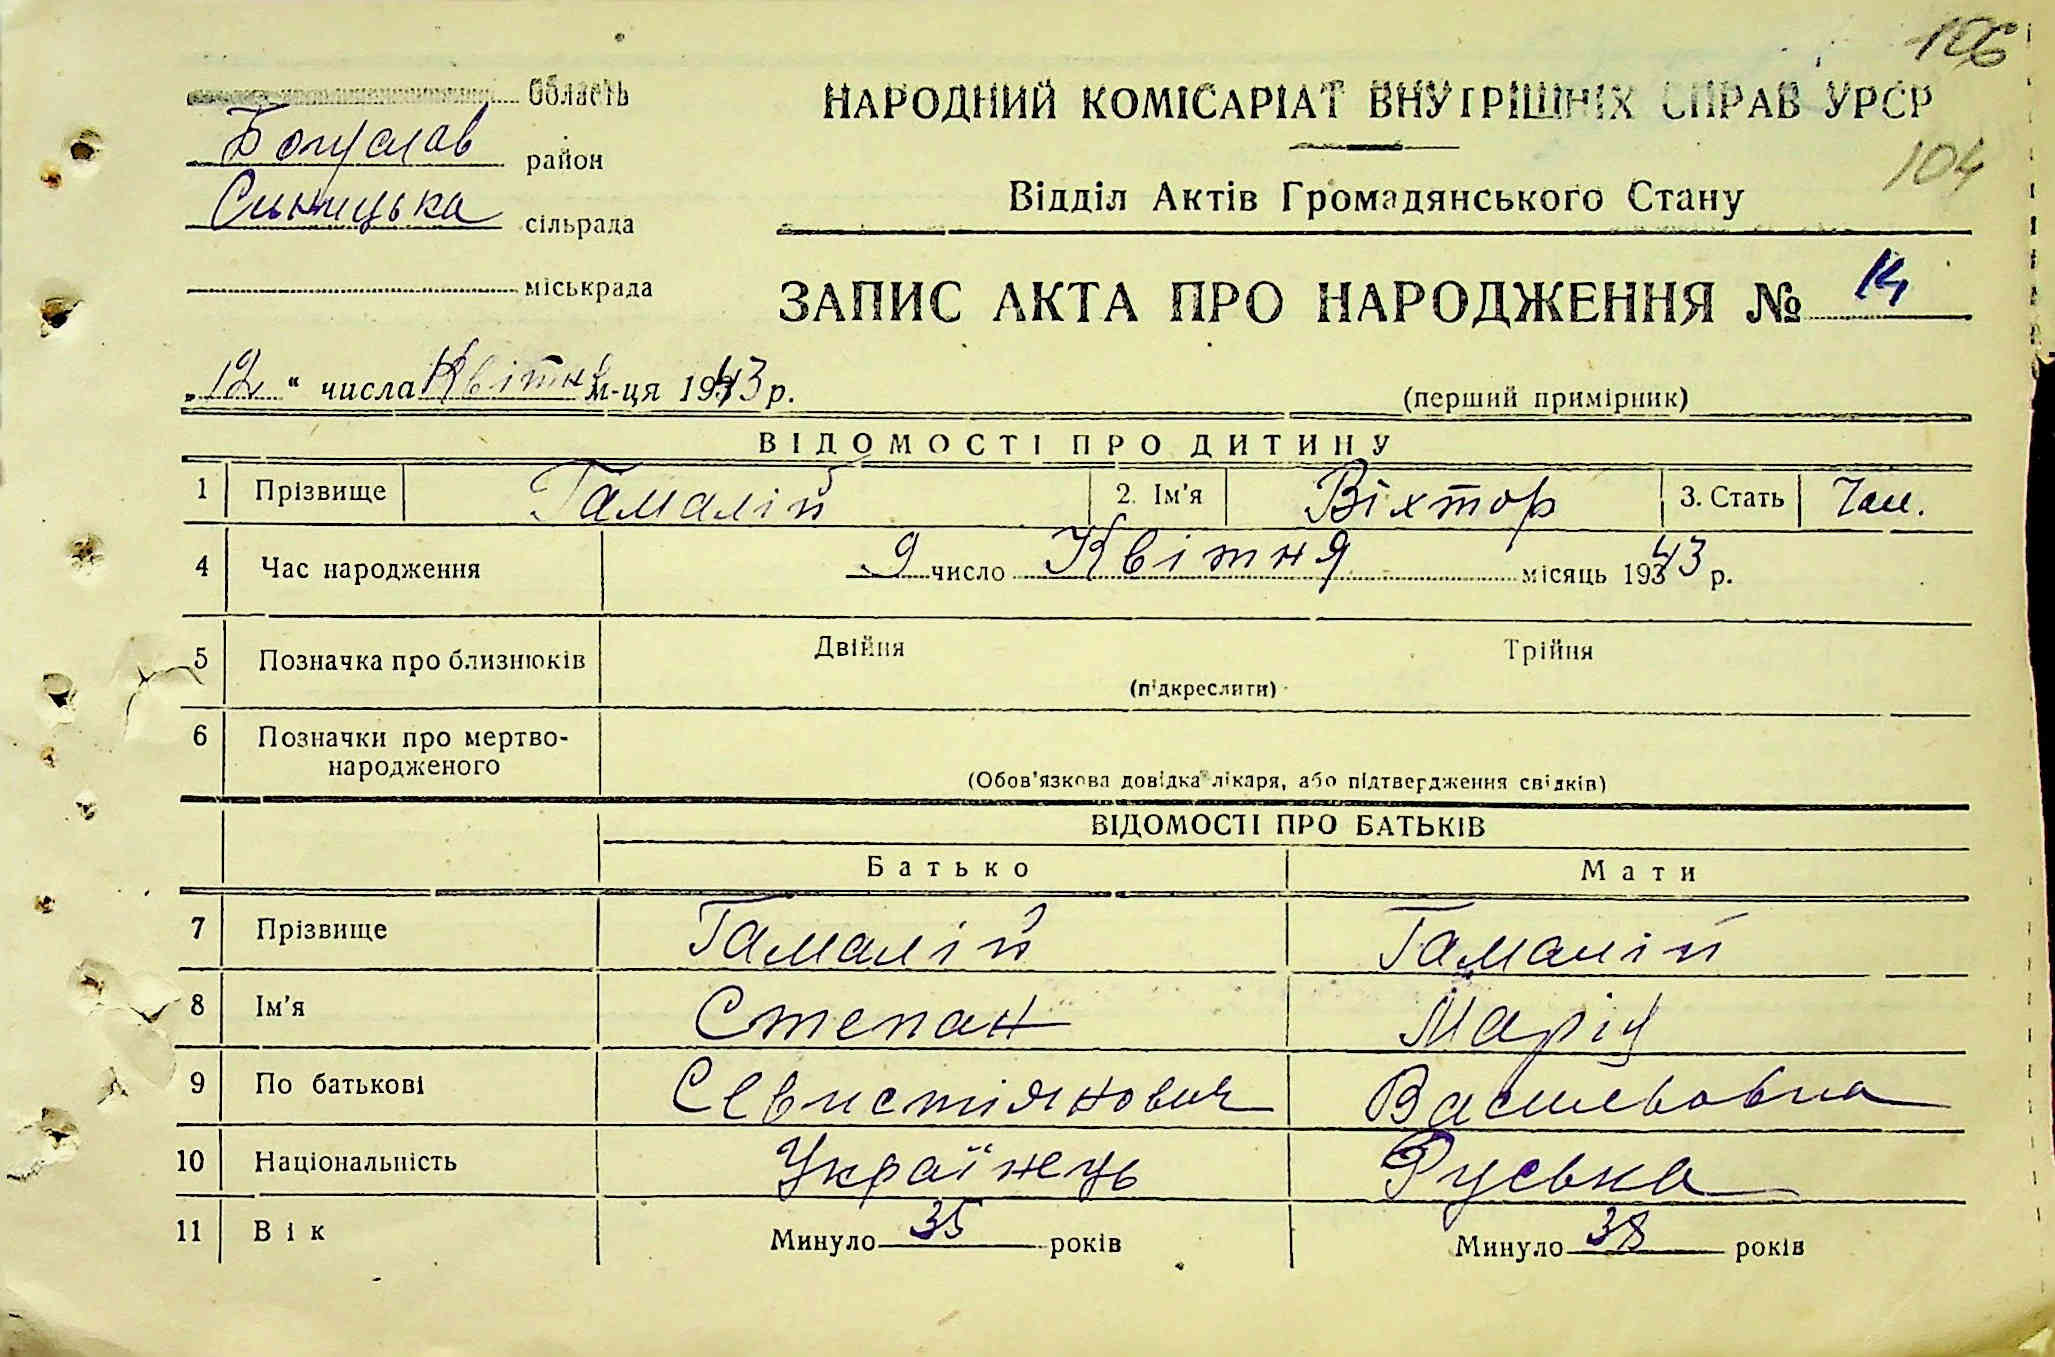 106
область
НАРОДНИЙ КОМІСАРІАТ ВНУТРІШНІХ СПРАВ УРСР
Богуслав район
104
Синицька сільрада
Відділ Актів Громадянського Стану
міськрада
ЗАПИС АКТА ПРО НАРОДЖЕННЯ № 14
„12“ числа Квітня м-ця 1943 р.
(перший примірник)
ВІДОМОСТІ ПРО ДИТИНУ
1 Прізвище Гамалій 2. Ім'я Віхтор 3. Стать Чол.
4 Час народження 9 число Квітня місяць 1943 р.
5 Позначка про близнюків Двійня Трійня
(підкреслити)
6 Позначки про мертво-
народженого
(Обов'язкова довідка лікаря, або підтвердження свідків)
ВІДОМОСТІ ПРО БАТЬКІВ
Батько Мати
7 Прізвище Гамалій Гамалій
8 Ім'я Степан Марія
9 По батькові Севистіянович Васильовна
10 Національність Українець Руська
11 Вік Минуло 35 років Минуло 38 років